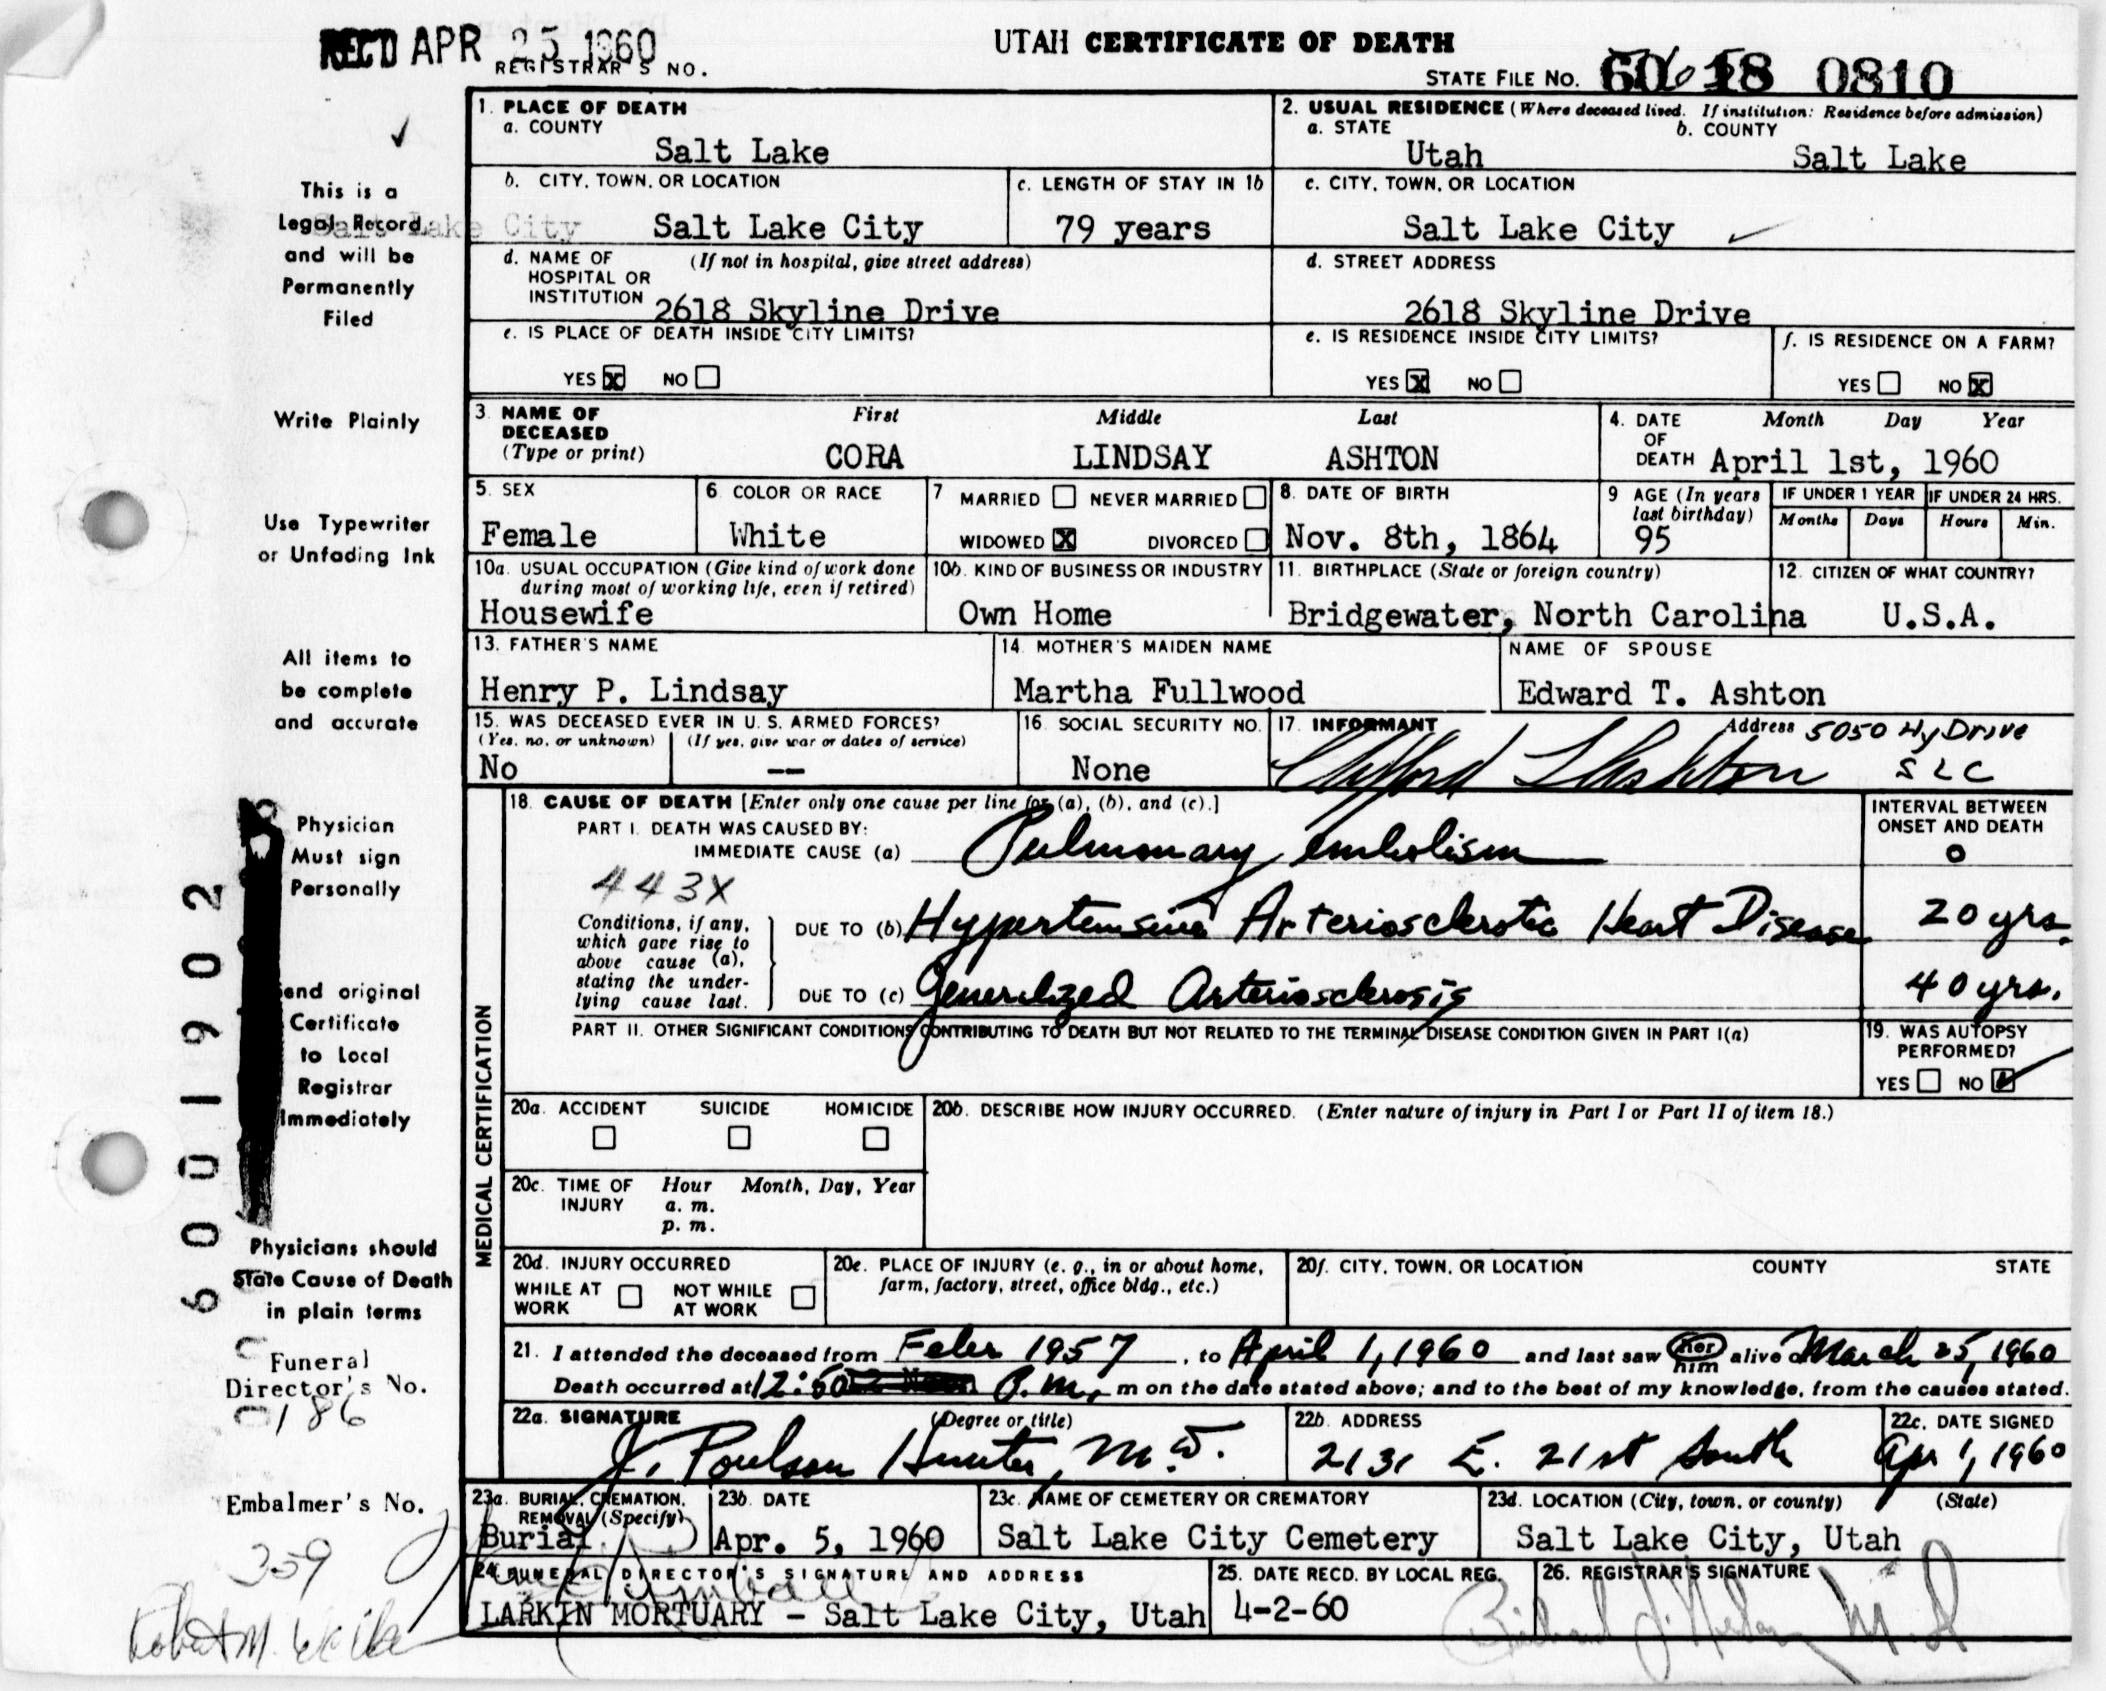 REC'D APR 25 1960
UTAH CERTIFICATE OF DEATH
REGISTRAR'S NO.
STATE FILE NO. 60 18 0810
1. PLACE OF DEATH
a. COUNTY
Salt Lake
2. USUAL RESIDENCE (Where deceased lived. If institution: Residence before admission)
a. STATE
Utah
b. COUNTY
Salt Lake
b. CITY, TOWN, OR LOCATION
Salt Lake City
c. LENGTH OF STAY IN 1b
79 years
c. CITY, TOWN, OR LOCATION
Salt Lake City
This is a
Legal Record
and will be
Permanently
Filed
Salt Lake City
d. NAME OF HOSPITAL OR INSTITUTION (If not in hospital, give street address)
2618 Skyline Drive
d. STREET ADDRESS
2618 Skyline Drive
e. IS PLACE OF DEATH INSIDE CITY LIMITS?
YES X NO
e. IS RESIDENCE INSIDE CITY LIMITS?
YES X NO
f. IS RESIDENCE ON A FARM?
YES NO X
Write Plainly
3. NAME OF DECEASED (Type or print)
First Middle Last
CORA LINDSAY ASHTON
4. DATE OF DEATH Month Day Year
April 1st, 1960
Use Typewriter
or Unfading Ink
5. SEX
Female
6. COLOR OR RACE
White
7 MARRIED NEVER MARRIED
WIDOWED X DIVORCED
8. DATE OF BIRTH
Nov. 8th, 1864
9 AGE (In years last birthday)
95
IF UNDER 1 YEAR
Months Days
IF UNDER 24 HRS.
Hours Min.
10a. USUAL OCCUPATION (Give kind of work done during most of working life, even if retired)
Housewife
10b. KIND OF BUSINESS OR INDUSTRY
Own Home
11. BIRTHPLACE (State or foreign country)
Bridgewater, North Carolina
12. CITIZEN OF WHAT COUNTRY?
U.S.A.
All items to
be complete
and accurate
13. FATHER'S NAME
Henry P. Lindsay
14. MOTHER'S MAIDEN NAME
Martha Fullwood
NAME OF SPOUSE
Edward T. Ashton
15. WAS DECEASED EVER IN U. S. ARMED FORCES?
(Yes, no, or unknown) (If yes, give war or dates of service)
No --
16. SOCIAL SECURITY NO.
None
17. INFORMANT
Clifford L Ashton
Address 5050 Hy Drive
SLC
MEDICAL CERTIFICATION
18. CAUSE OF DEATH [Enter only one cause per line for (a), (b), and (c).]
PART I. DEATH WAS CAUSED BY:
IMMEDIATE CAUSE (a) Pulmonary embolism
INTERVAL BETWEEN ONSET AND DEATH
0
443X
Conditions, if any, which gave rise to above cause (a), stating the underlying cause last.
DUE TO (b) Hypertensive Arteriosclerotic Heart Disease
20 yrs.
DUE TO (c) Generalized Arteriosclerosis
40 yrs.
PART II. OTHER SIGNIFICANT CONDITIONS CONTRIBUTING TO DEATH BUT NOT RELATED TO THE TERMINAL DISEASE CONDITION GIVEN IN PART I(a)
19. WAS AUTOPSY PERFORMED?
YES NO
Physician
Must sign
Personally
6001902
end original
Certificate
to Local
Registrar
Immediately
20a. ACCIDENT SUICIDE HOMICIDE
20b. DESCRIBE HOW INJURY OCCURRED. (Enter nature of injury in Part I or Part II of item 18.)
20c. TIME OF INJURY Hour Month, Day, Year
a. m.
p. m.
20d. INJURY OCCURRED
WHILE AT WORK NOT WHILE AT WORK
20e. PLACE OF INJURY (e. g., in or about home, farm, factory, street, office bldg., etc.)
20f. CITY, TOWN, OR LOCATION COUNTY STATE
Physicians should
State Cause of Death
in plain terms
21. I attended the deceased from Feber 1957, to April 1, 1960 and last saw her him alive on March 25, 1960
Death occurred at 12:50 P.M., m on the date stated above; and to the best of my knowledge, from the causes stated.
Funeral
Director's No.
186
22a. SIGNATURE (Degree or title)
J. Poulson Hunter, M.D.
22b. ADDRESS
2131 E. 21st South
22c. DATE SIGNED
Apr 1, 1960
Embalmer's No.
359
23a. BURIAL, CREMATION, REMOVAL (Specify)
Burial
23b. DATE
Apr. 5, 1960
23c. NAME OF CEMETERY OR CREMATORY
Salt Lake City Cemetery
23d. LOCATION (City, town, or county) (State)
Salt Lake City, Utah
24. FUNERAL DIRECTOR'S SIGNATURE AND ADDRESS
LARKIN MORTUARY - Salt Lake City, Utah
25. DATE RECD. BY LOCAL REG.
4-2-60
26. REGISTRAR'S SIGNATURE